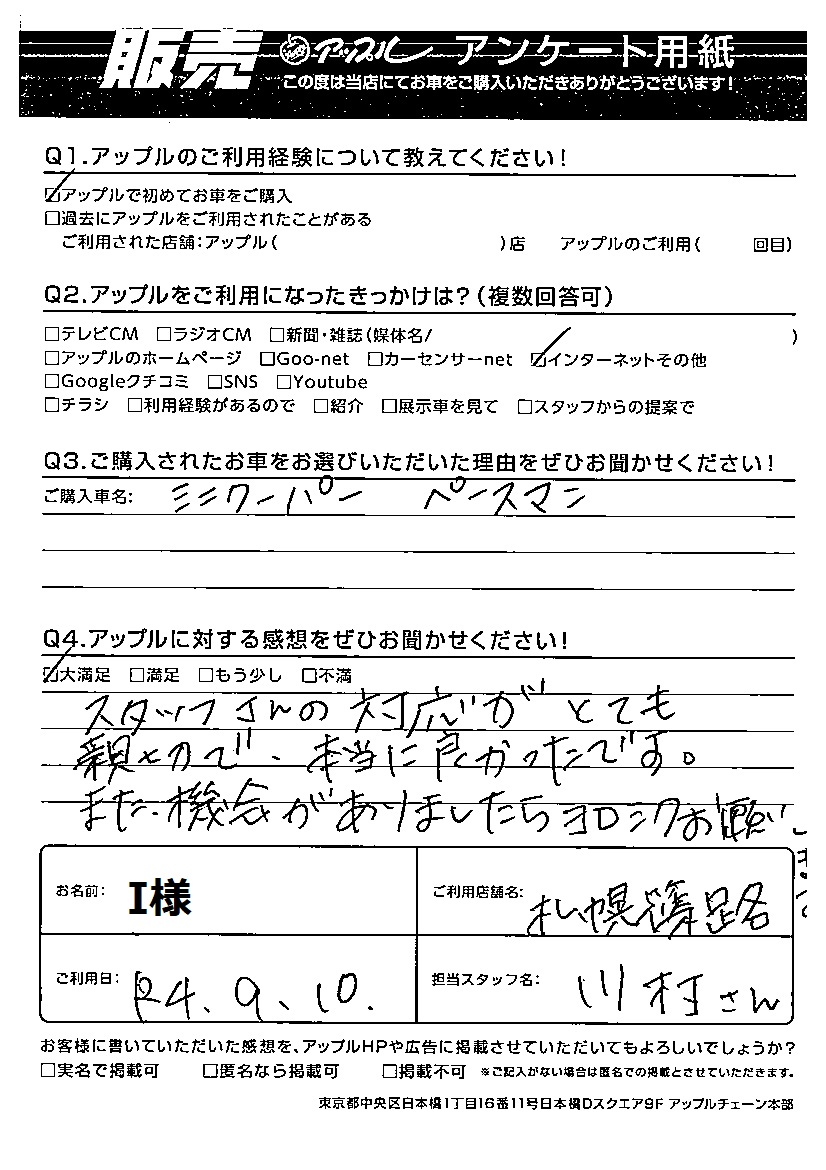 販売 アップル アンケート用紙
この度は当店にてお車をご購入いただきありがとうございます！
Q1.アップルのご利用経験について教えてください！
☑アップルで初めてお車をご購入
□過去にアップルをご利用されたことがある
ご利用された店舗：アップル（ ）店 アップルのご利用（ 回目）
Q2.アップルをご利用になったきっかけは？（複数回答可）
□テレビCM □ラジオCM □新聞・雑誌（媒体名/ ）
□アップルのホームページ □Goo-net □カーセンサーnet ☑インターネットその他
□Googleクチコミ □SNS □Youtube
□チラシ □利用経験があるので □紹介 □展示車を見て □スタッフからの提案で
Q3.ご購入されたお車をお選びいただいた理由をぜひお聞かせください！
ご購入車名： ミニクーパー ペースマン
Q4.アップルに対する感想をぜひお聞かせください！
☑大満足 □満足 □もう少し □不満
スタッフさんの対応がとても
親切で、本当に良かったです。
また、機会がありましたらヨロシクお願い
します
お名前： I様 ご利用店舗名： 札幌清田
ご利用日： R4、9、10. 担当スタッフ名： 川村さん
お客様に書いていただいた感想を、アップルHPや広告に掲載させていただいてもよろしいでしょうか？
□実名で掲載可 □匿名なら掲載可 □掲載不可 ※ご記入がない場合は匿名での掲載とさせていただきます。
東京都中央区日本橋1丁目16番11号日本橋Dスクエア9F アップルチェーン本部